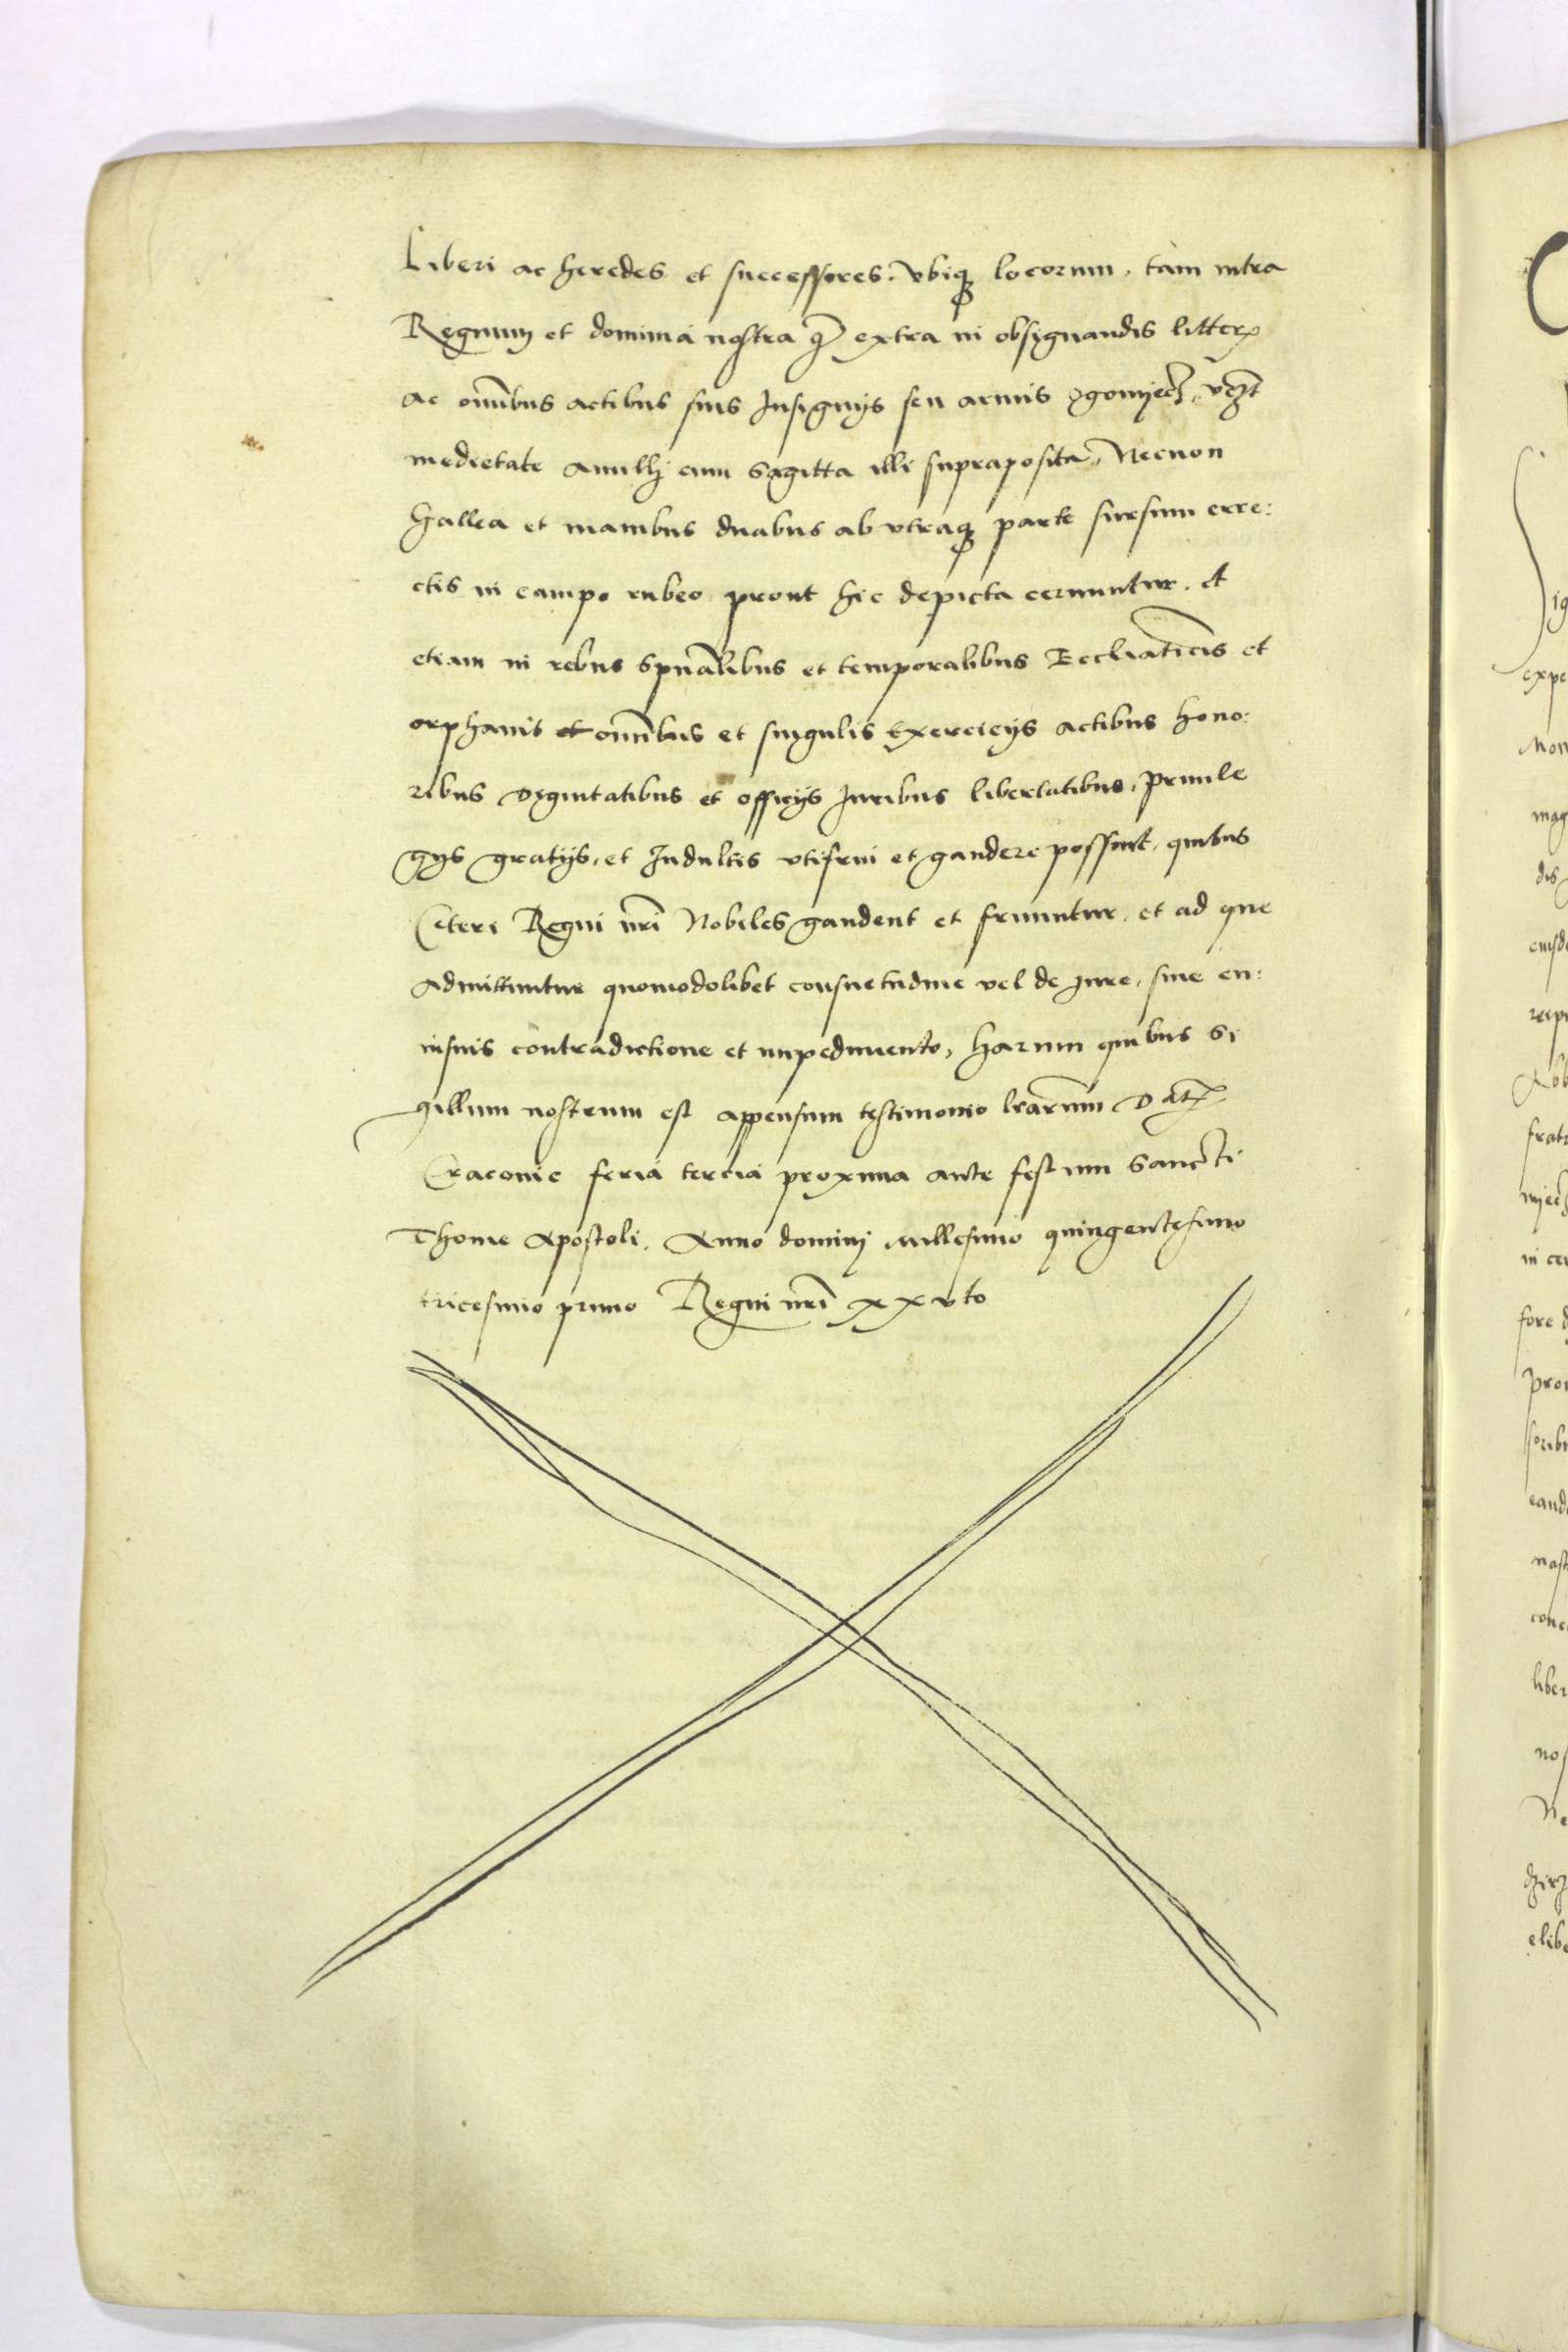 Liberi ac heredes et successores. vbiq locorum, tam intra
Regnum et dominia nostra q̃ extra in obsignandis litter
ac om̃ibus actibus suis Insignijs seu armis Ogonijecz, vczt
medietate anulli cum Sagitta illi supraposita, Necnon
Gallea et manibus duabus ab vtraq parte sursum erre:
ctis in campo rubeo prout hic depicta cernuntur. et
etiam in rebus Spũalibus et temporalibus Eccliaticis et
orphanis et om̃ibus et singulis Exercicijs actibus hono:
ribus Dignitatibus et officijs Juribus libertatibus, priuile
gijs gratijs, et Indultis vtifrui et gaudere possint, quibus
Ceteri Regni nr̃i Nobiles gaudent et fruuntur, et ad que
admittuntur quomodolibet consuetudine vel de Jure, sine cu:
iusuis contradictione et impedimento, Harum quibus Si
gillum nostrum est appensum testimonio lrarum Dat
Cracouie feria tercia proxima ante festum Sancti
Thome Apostoli. Anno domini Millesimo quingentesimo
tricesimo primo Regni nr̃i xxvto
expe
mag
dis
frat
in ce
fore
liber
nos
elibe